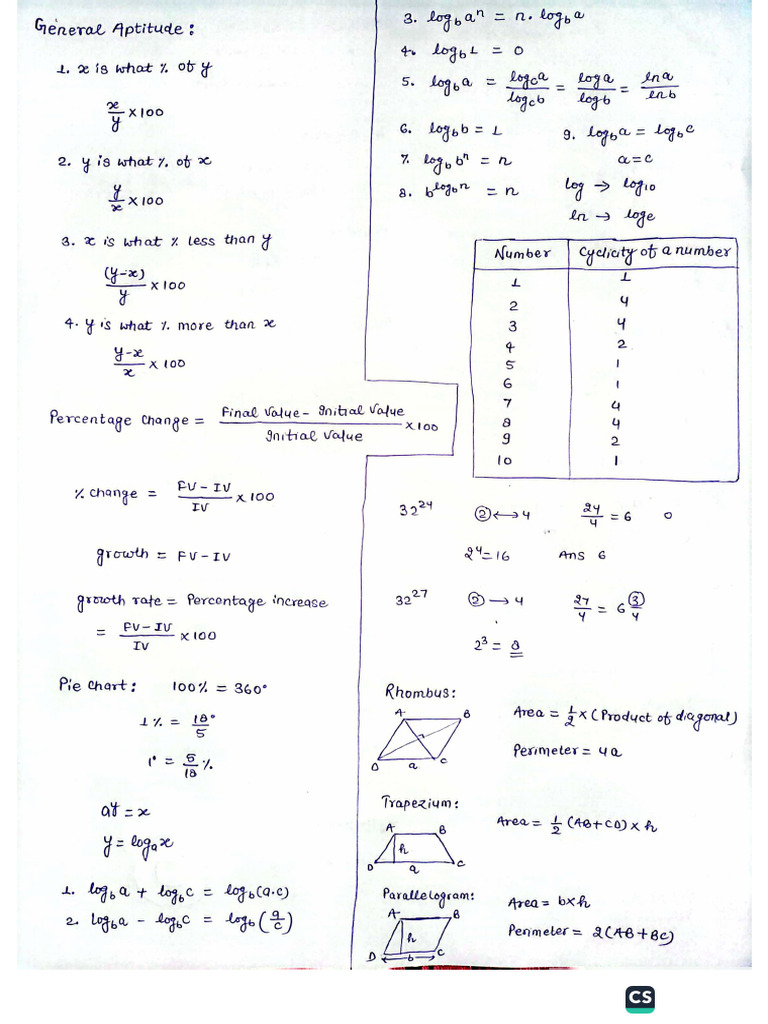 General Aptitude:
1. x is what % of y
x/y × 100
2. y is what % of x
y/x × 100
3. x is what % less than y
(y-x)/y × 100
4. y is what % more than x
y-x/x × 100
Percentage Change = Final Value - Initial Value/Initial Value × 100
% change = FV - IV/IV × 100
growth = FV - IV
growth rate = Percentage increase
= FV - IV/IV × 100
Pie Chart: 100% = 360°
1% = 18°/5
1° = 5/18 %
a^y = x
y = log_a x
1. log_b a + log_b c = log_b (a.c)
2. log_b a - log_b c = log_b (a/c)
3. log_b a^n = n. log_b a
4. log_b 1 = 0
5. log_b a = log_c a/log_c b = log a/log b = ln a/ln b
6. log_b b = 1 9. log_b a = log_b c
7. log_b b^n = n a = c
8. b^log_b n = n log → log_10
ln → log_e
Number Cyclicity of a number
1 1
2 4
3 4
4 2
5 1
6 1
7 4
8 4
9 2
10 1
32^24 ② ↔ 4 24/4 = 6 0
2^4 = 16 Ans 6
32^27 ② → 4 27/4 = 6 ③/4
2^3 = 8
Rhombus:
A B
Area = 1/2 × (Product of diagonal)
Perimeter = 4a
D a C
Trapezium:
A B
Area = 1/2 (AB+CD) × h
h
D a C
Parallelogram:
Area = b×h
A B
h
Perimeter = 2(AB+BC)
D b C
CS